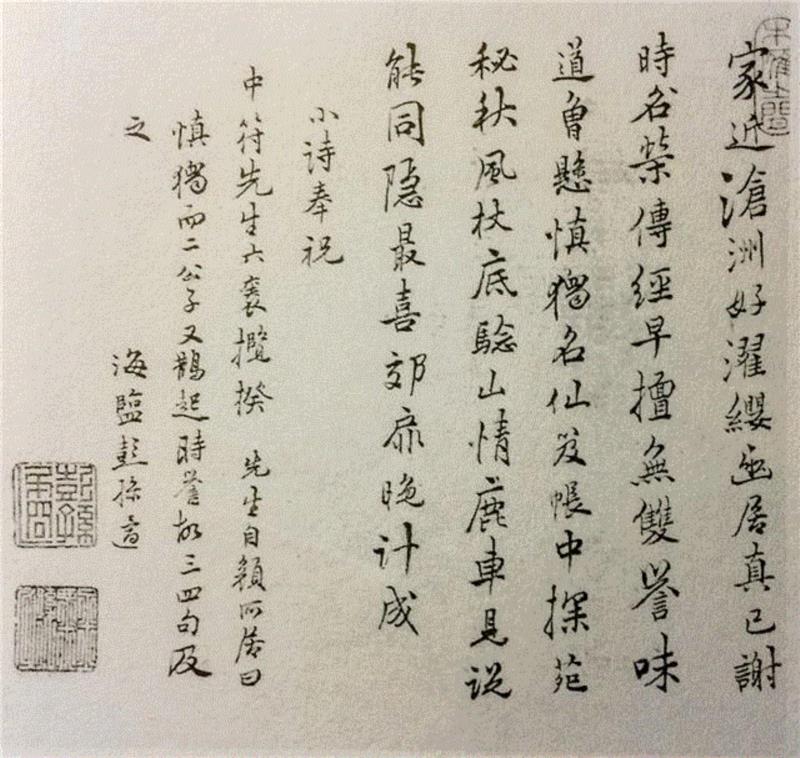 家近滄洲好濯纓幽居真已謝
時名榮傳經早擅無雙譽味
道曾懸慎獨名仙笈帳中探苑
秘秋風杖底騐山情鹿車見説
能同隱最喜郊扉晚計成
小詩奉祝
中符先生六袠攬揆 先生自額所居曰
慎獨而二公子又鵲起時譽故三四句及
之
海鹽彭孫遹